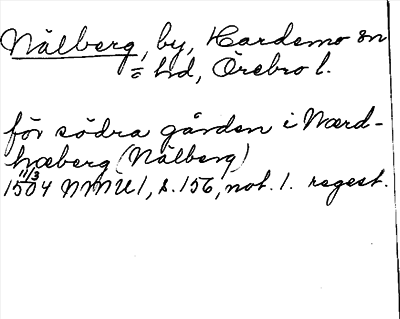 Nälberg, by, Hardemo sn
= hd, Örebro l.
för södra gården i Nærd-
hæberg (Nälberg)
11/3
1504 NMU 1, s. 156, not. 1. regest.